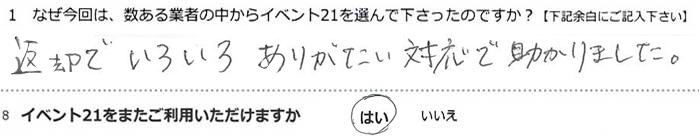 1 なぜ今回は、数ある業者の中からイベント21を選んで下さったのですか？【下記余白にご記入下さい】
返却でいろいろありがたい対応で助かりました。
8 イベント21をまたご利用いただけますか はい いいえ